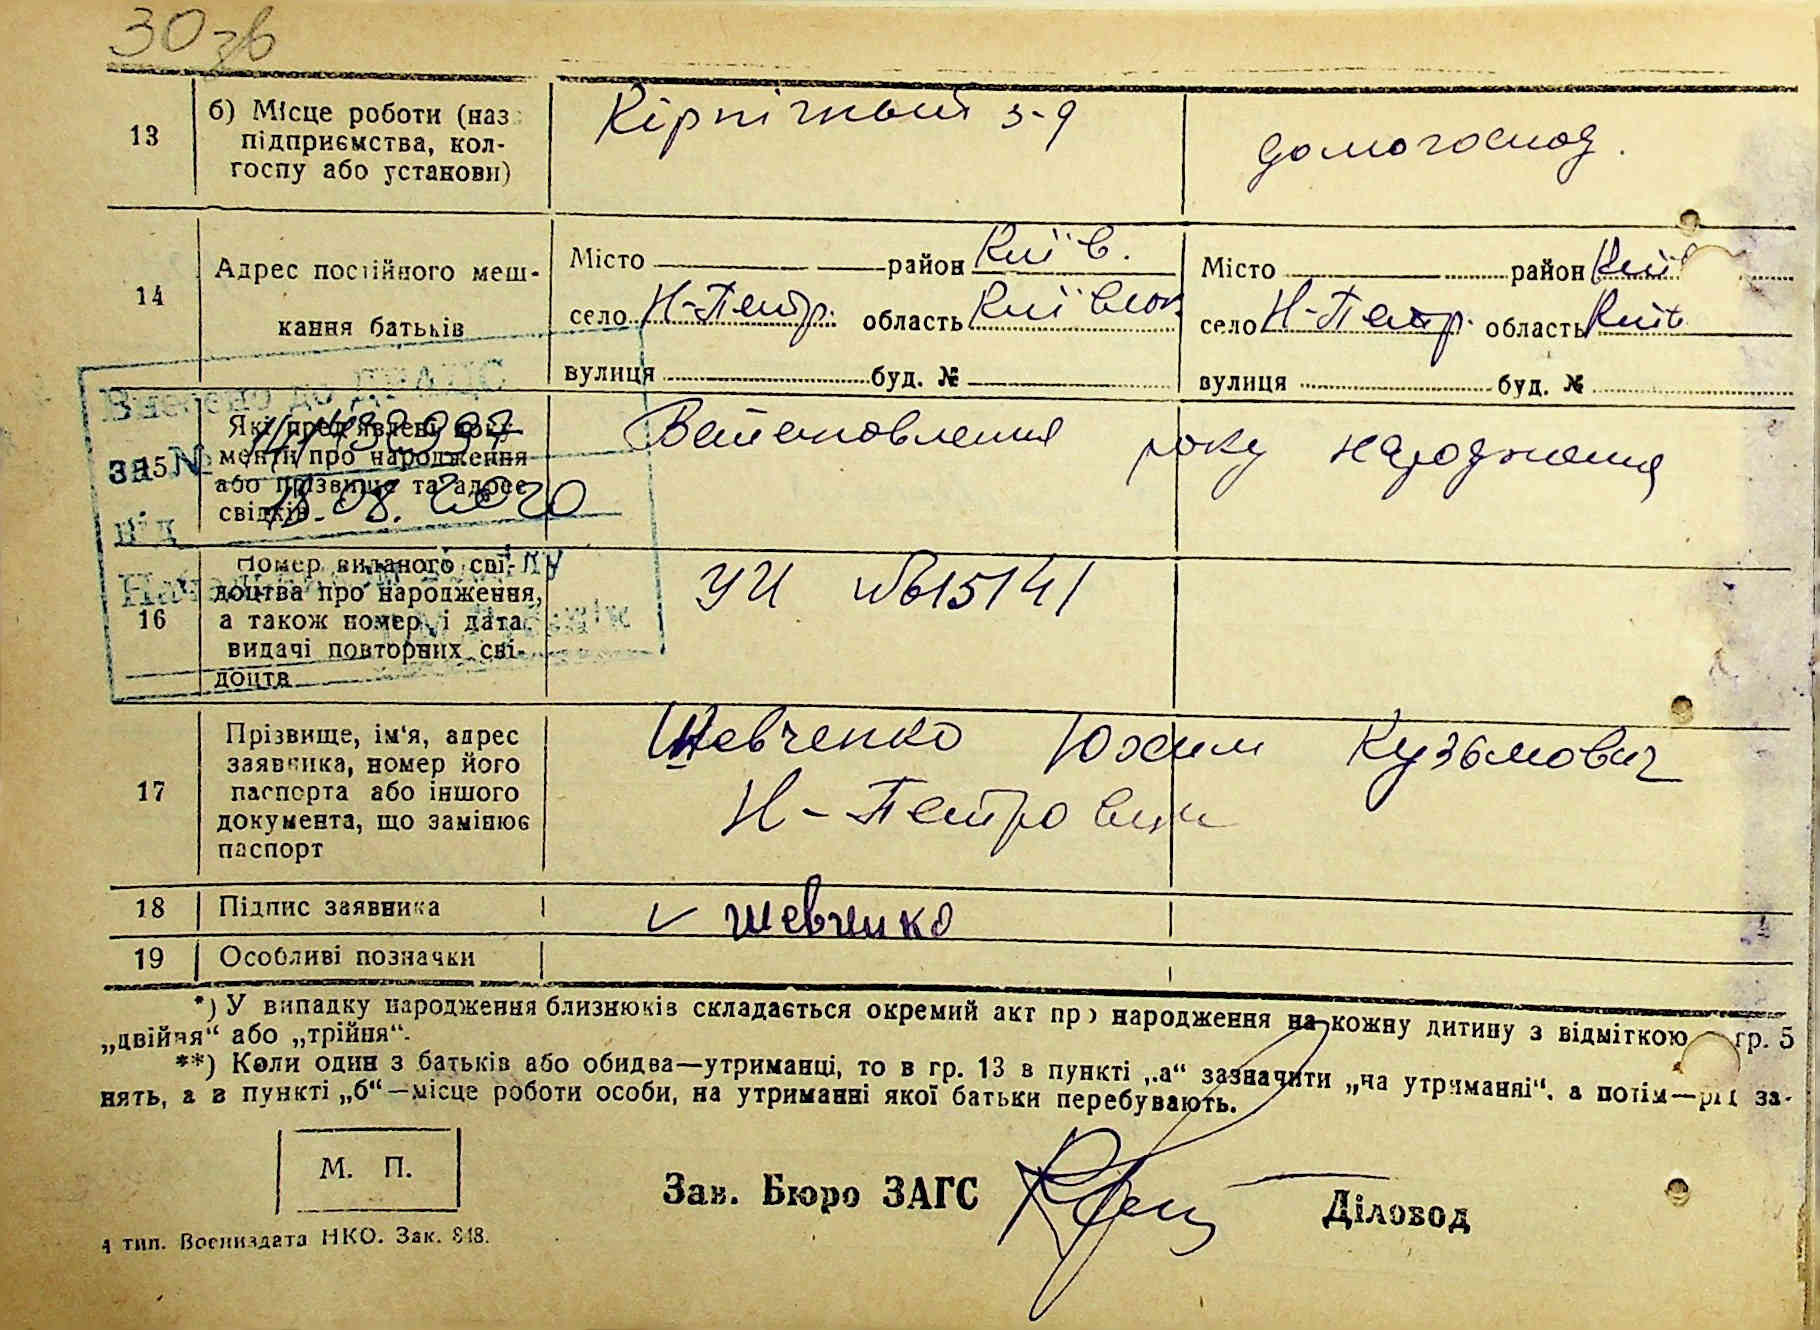 30 зв
13
б) Місце роботи (наз
підприємства, кол-
госпу або установи)
Кірпічный з-д
домогоспод.
14
Адрес постійного меш-
кання батьків
Місто район Київ.
село Н-Петр. область Київськ
вулиця буд. №
Місто район Київ
село Н-Петр. область Київ
вулиця буд. №
Внесено до ДРАЦС
за №
від 13.08.2020
15
Які пред'явлені доку-
менти про народження
або прізвище та адреє
свідків
Встановлення року народження
16
Номер виданого сві-
доцтва про народження,
а також номер і дата
видачі повторних сві-
доцтв
УИ №615141
17
Прізвище, ім'я, адрес
заявника, номер його
паспорта або іншого
документа, що замінює
паспорт
Шевченко Юхим Кузьмович
Н-Петровци
18
Підпис заявника
Шевченко
19
Особливі позначки
*) У випадку народження близнюків складається окремий акт про народження на кожну дитину з відміткою гр. 5
„двійня“ або „трійня“.
**) Коли один з батьків або обидва—утриманці, то в гр. 13 в пункті „а“ зазначити „на утриманні“, а потім—рід за-
нять, а в пункті „б“—місце роботи особи, на утриманні якої батьки перебувають.
М. П.
Зав. Бюро ЗАГС
Діловод
4 тип. Воениздата НКО. Зак. 848.